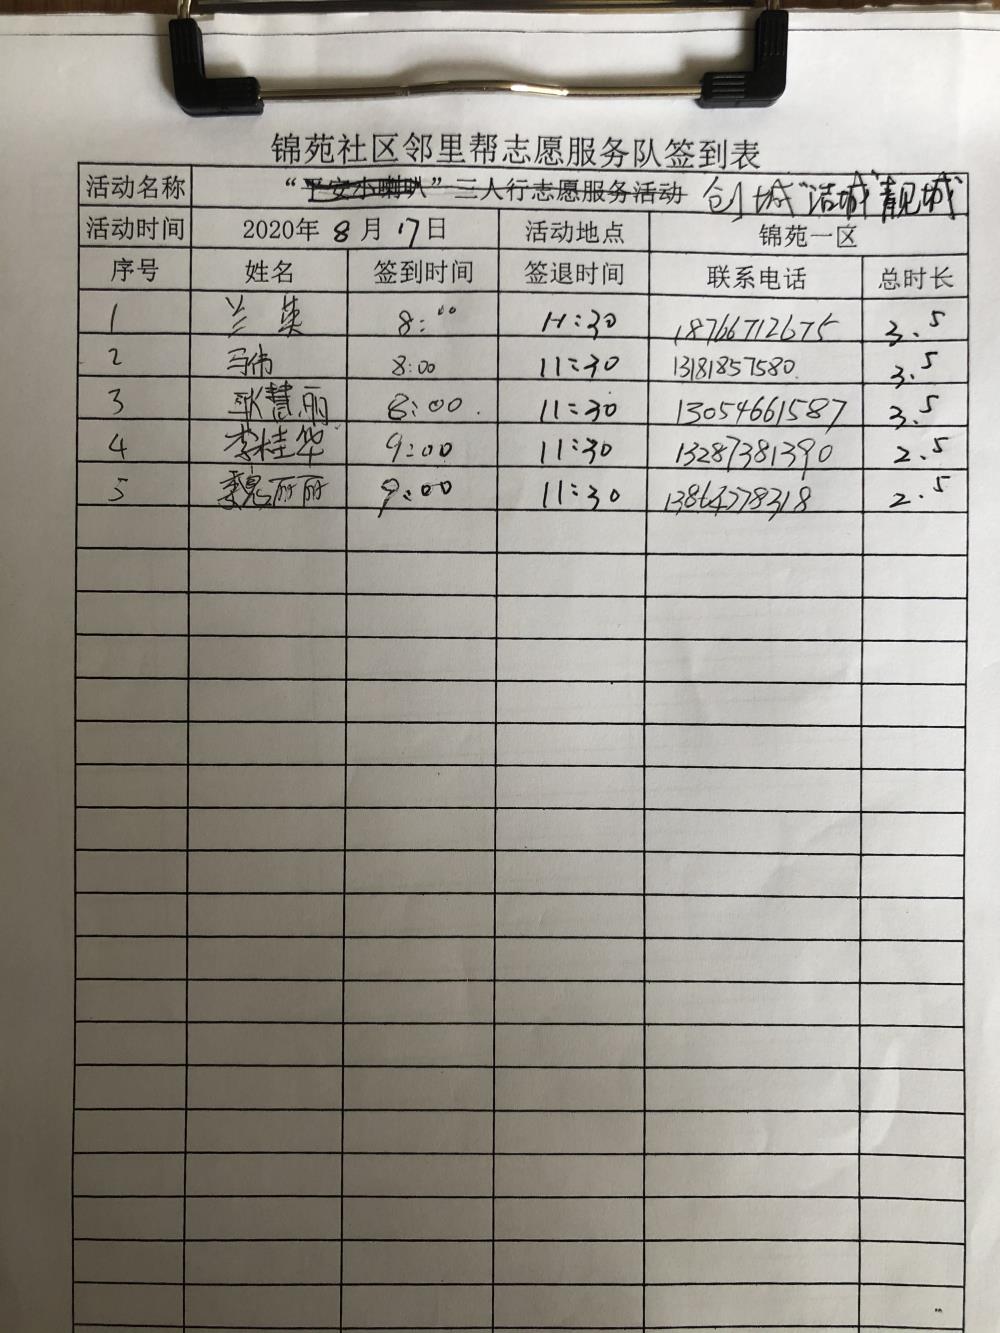 锦苑社区邻里帮志愿服务队签到表
活动名称 “平安小喇叭”三人行志愿服务活动 创城“洁城”靓城
活动时间 2020年 8 月 17日 活动地点 锦苑一区
序号 姓名 签到时间 签退时间 联系电话 总时长
1 兰英 8:00 11:30 18766712675 3.5
2 马伟 8:00 11:30 13181857580 3.5
3 耿慧丽 8:00 11:30 13054661587 3.5
4 李桂华 9:00 11:30 13287381390 2.5
5 魏丽丽 9:00 11:30 2.5